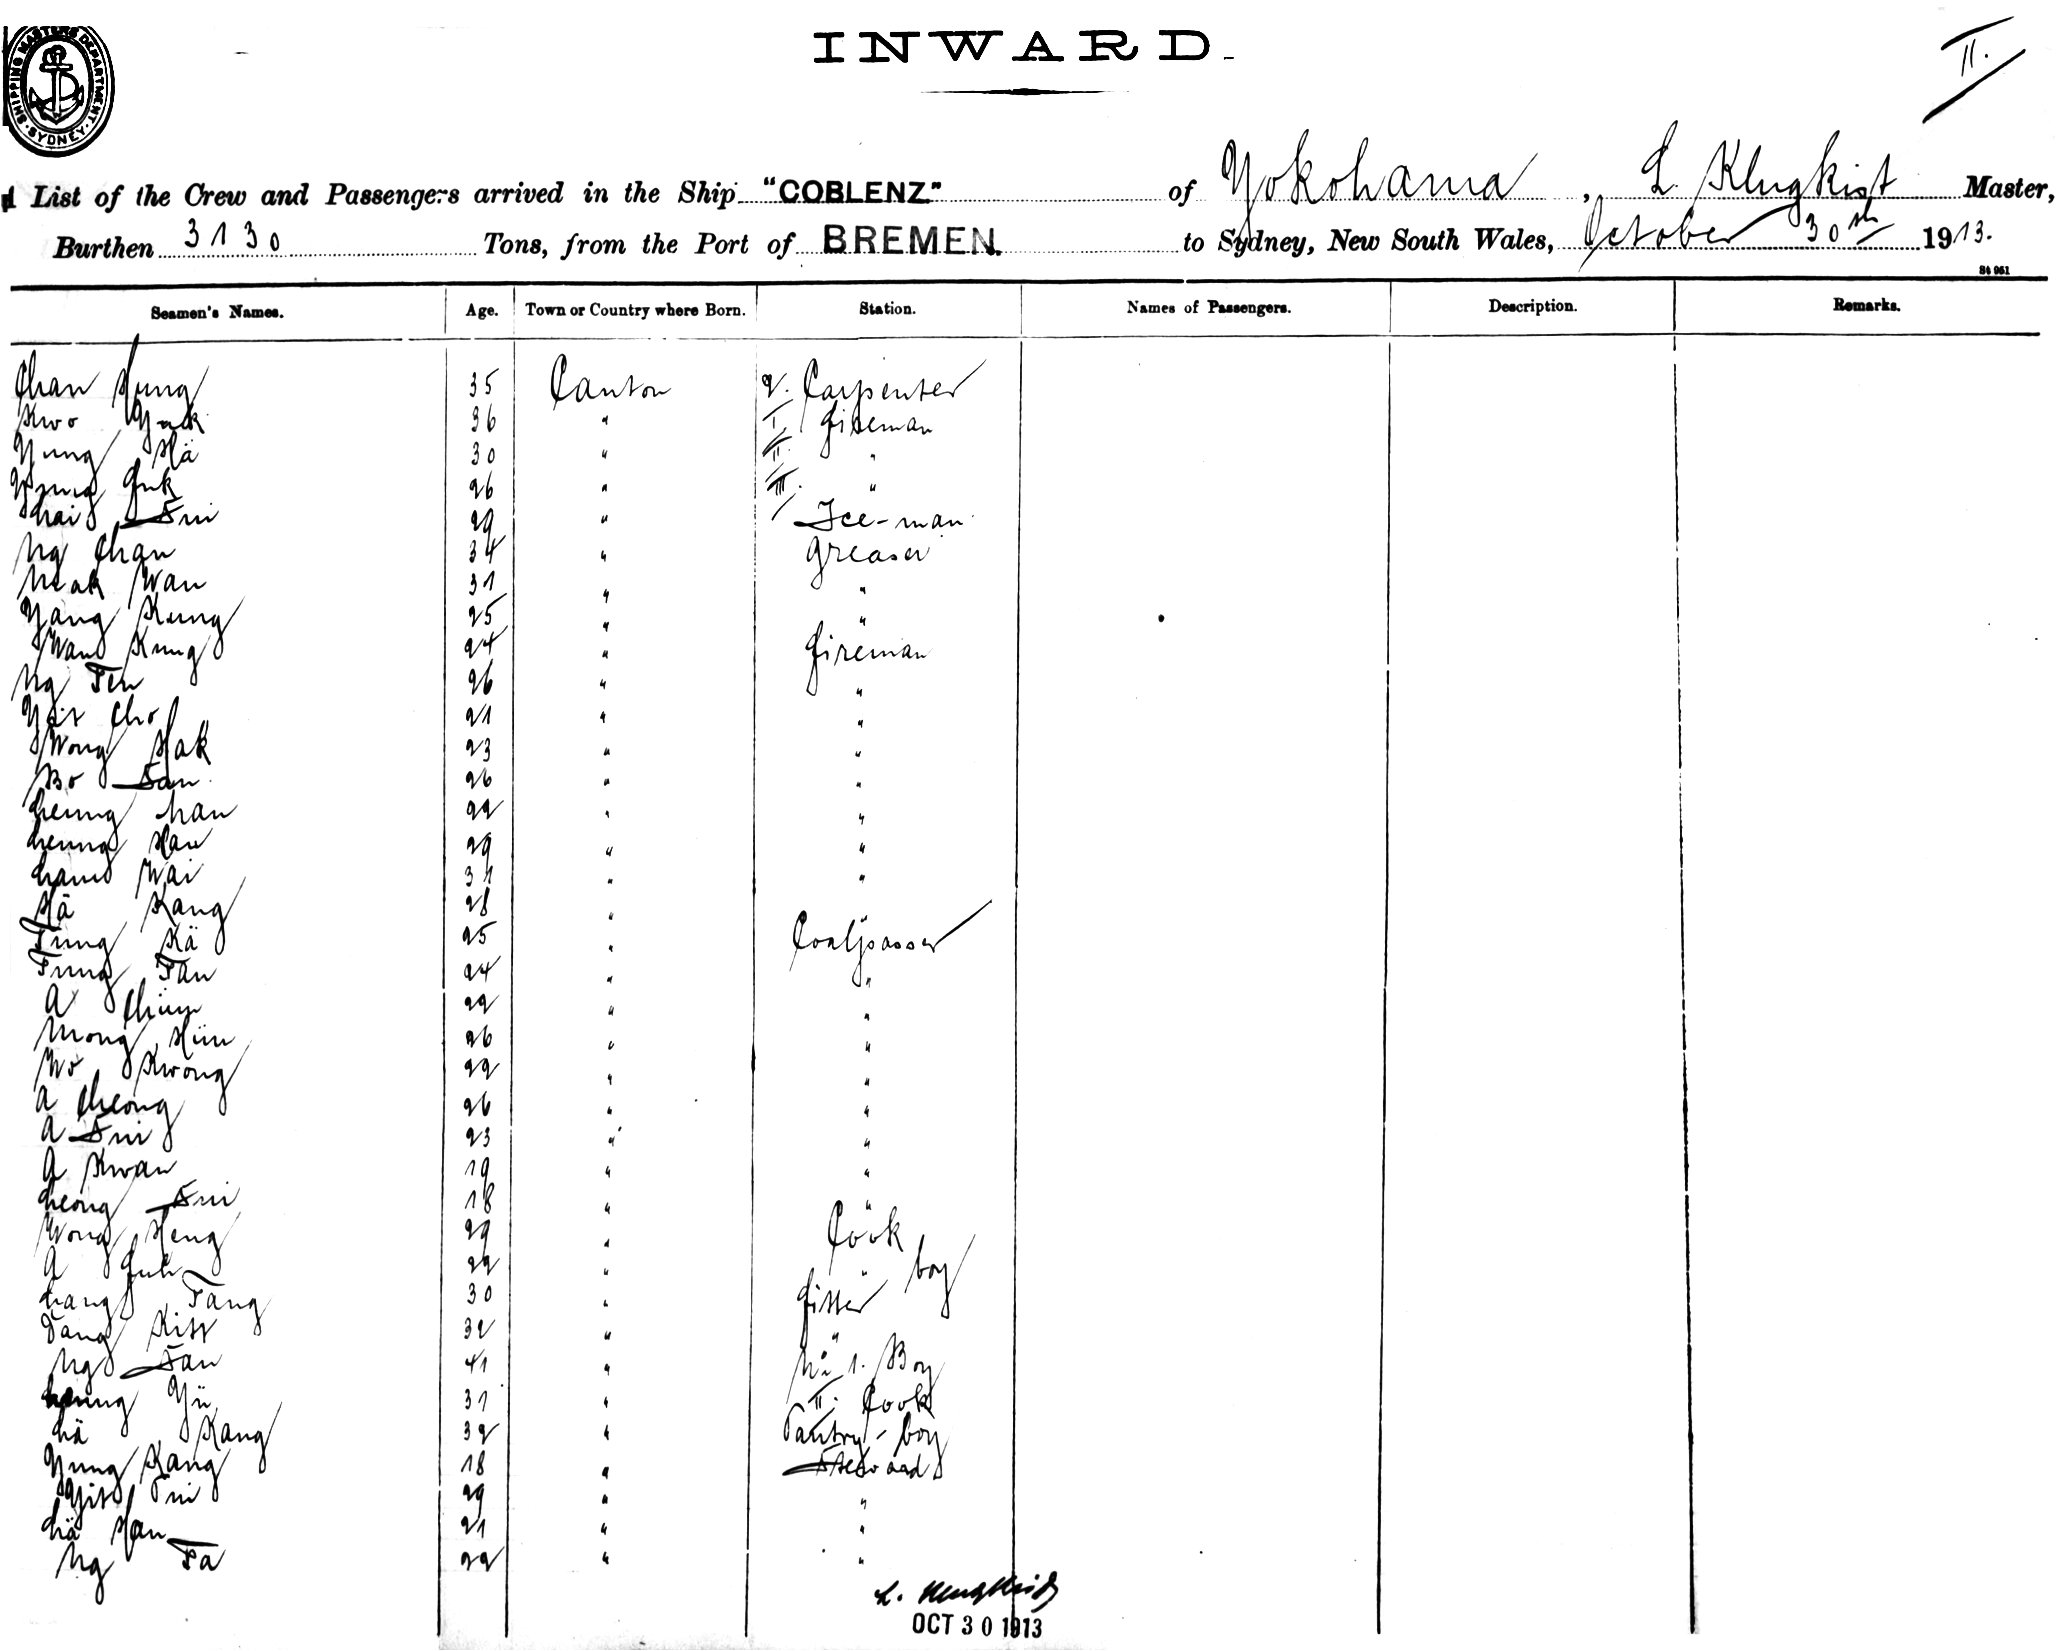 INWARD.
II.
SHIPPING MASTERS DEPARTMENT · SYDNEY ·
List of the Crew and Passengers arrived in the Ship "COBLENZ" of Yokohama, L. Klugkist Master,
Burthen 3130 Tons, from the Port of BREMEN. to Sydney, New South Wales, October 30th 1913.
St 961
Seamen's Names. Age. Town or Country where Born. Station. Names of Passengers. Description. Remarks.
Chan Hung 35 Canton 2. Carpenter
Kwo Yuk 36 " I. Fireman
Yung Hä 30 " II. "
Yung Fuk 26 " III. "
Lai Sui 29 " Ice-man
Ng Chan 34 " Greaser
Mak Wan 31 " "
Yang Kung 25 " "
Wan Kung 24 " Fireman
Ng Ten 26 " "
Yit Cho 21 " "
Wong Hak 23 " "
Bo San 26 " "
Leung Man 22 " "
Leung Hau 29 " "
Lam Wai 31 " "
Hä Kang 28 " "
Tung Kä 25 " Coalpasser
Tung Tan 24 " "
A Chün 22 " "
Mong Hün 26 " "
Wo Kwong 22 " "
A Cheong 26 " "
A Sui 23 " "
A Kwan 19 " "
Leong Sui 18 " "
Wong Heng 29 " Cook
A 22 " " boy
Lang Tang 30 " Fitter
Tang Kitt 32 " "
Ng San 41 " No 1. Boy
Leung Yü 31 " II. Cook
Lä Kang 32 " Pantry-boy
Yung Kang 18 " Steward
Yit Sui 29 " "
Lä Han 21 " "
Ng Fa 22 " "
L. Klugkist
OCT 30 1913